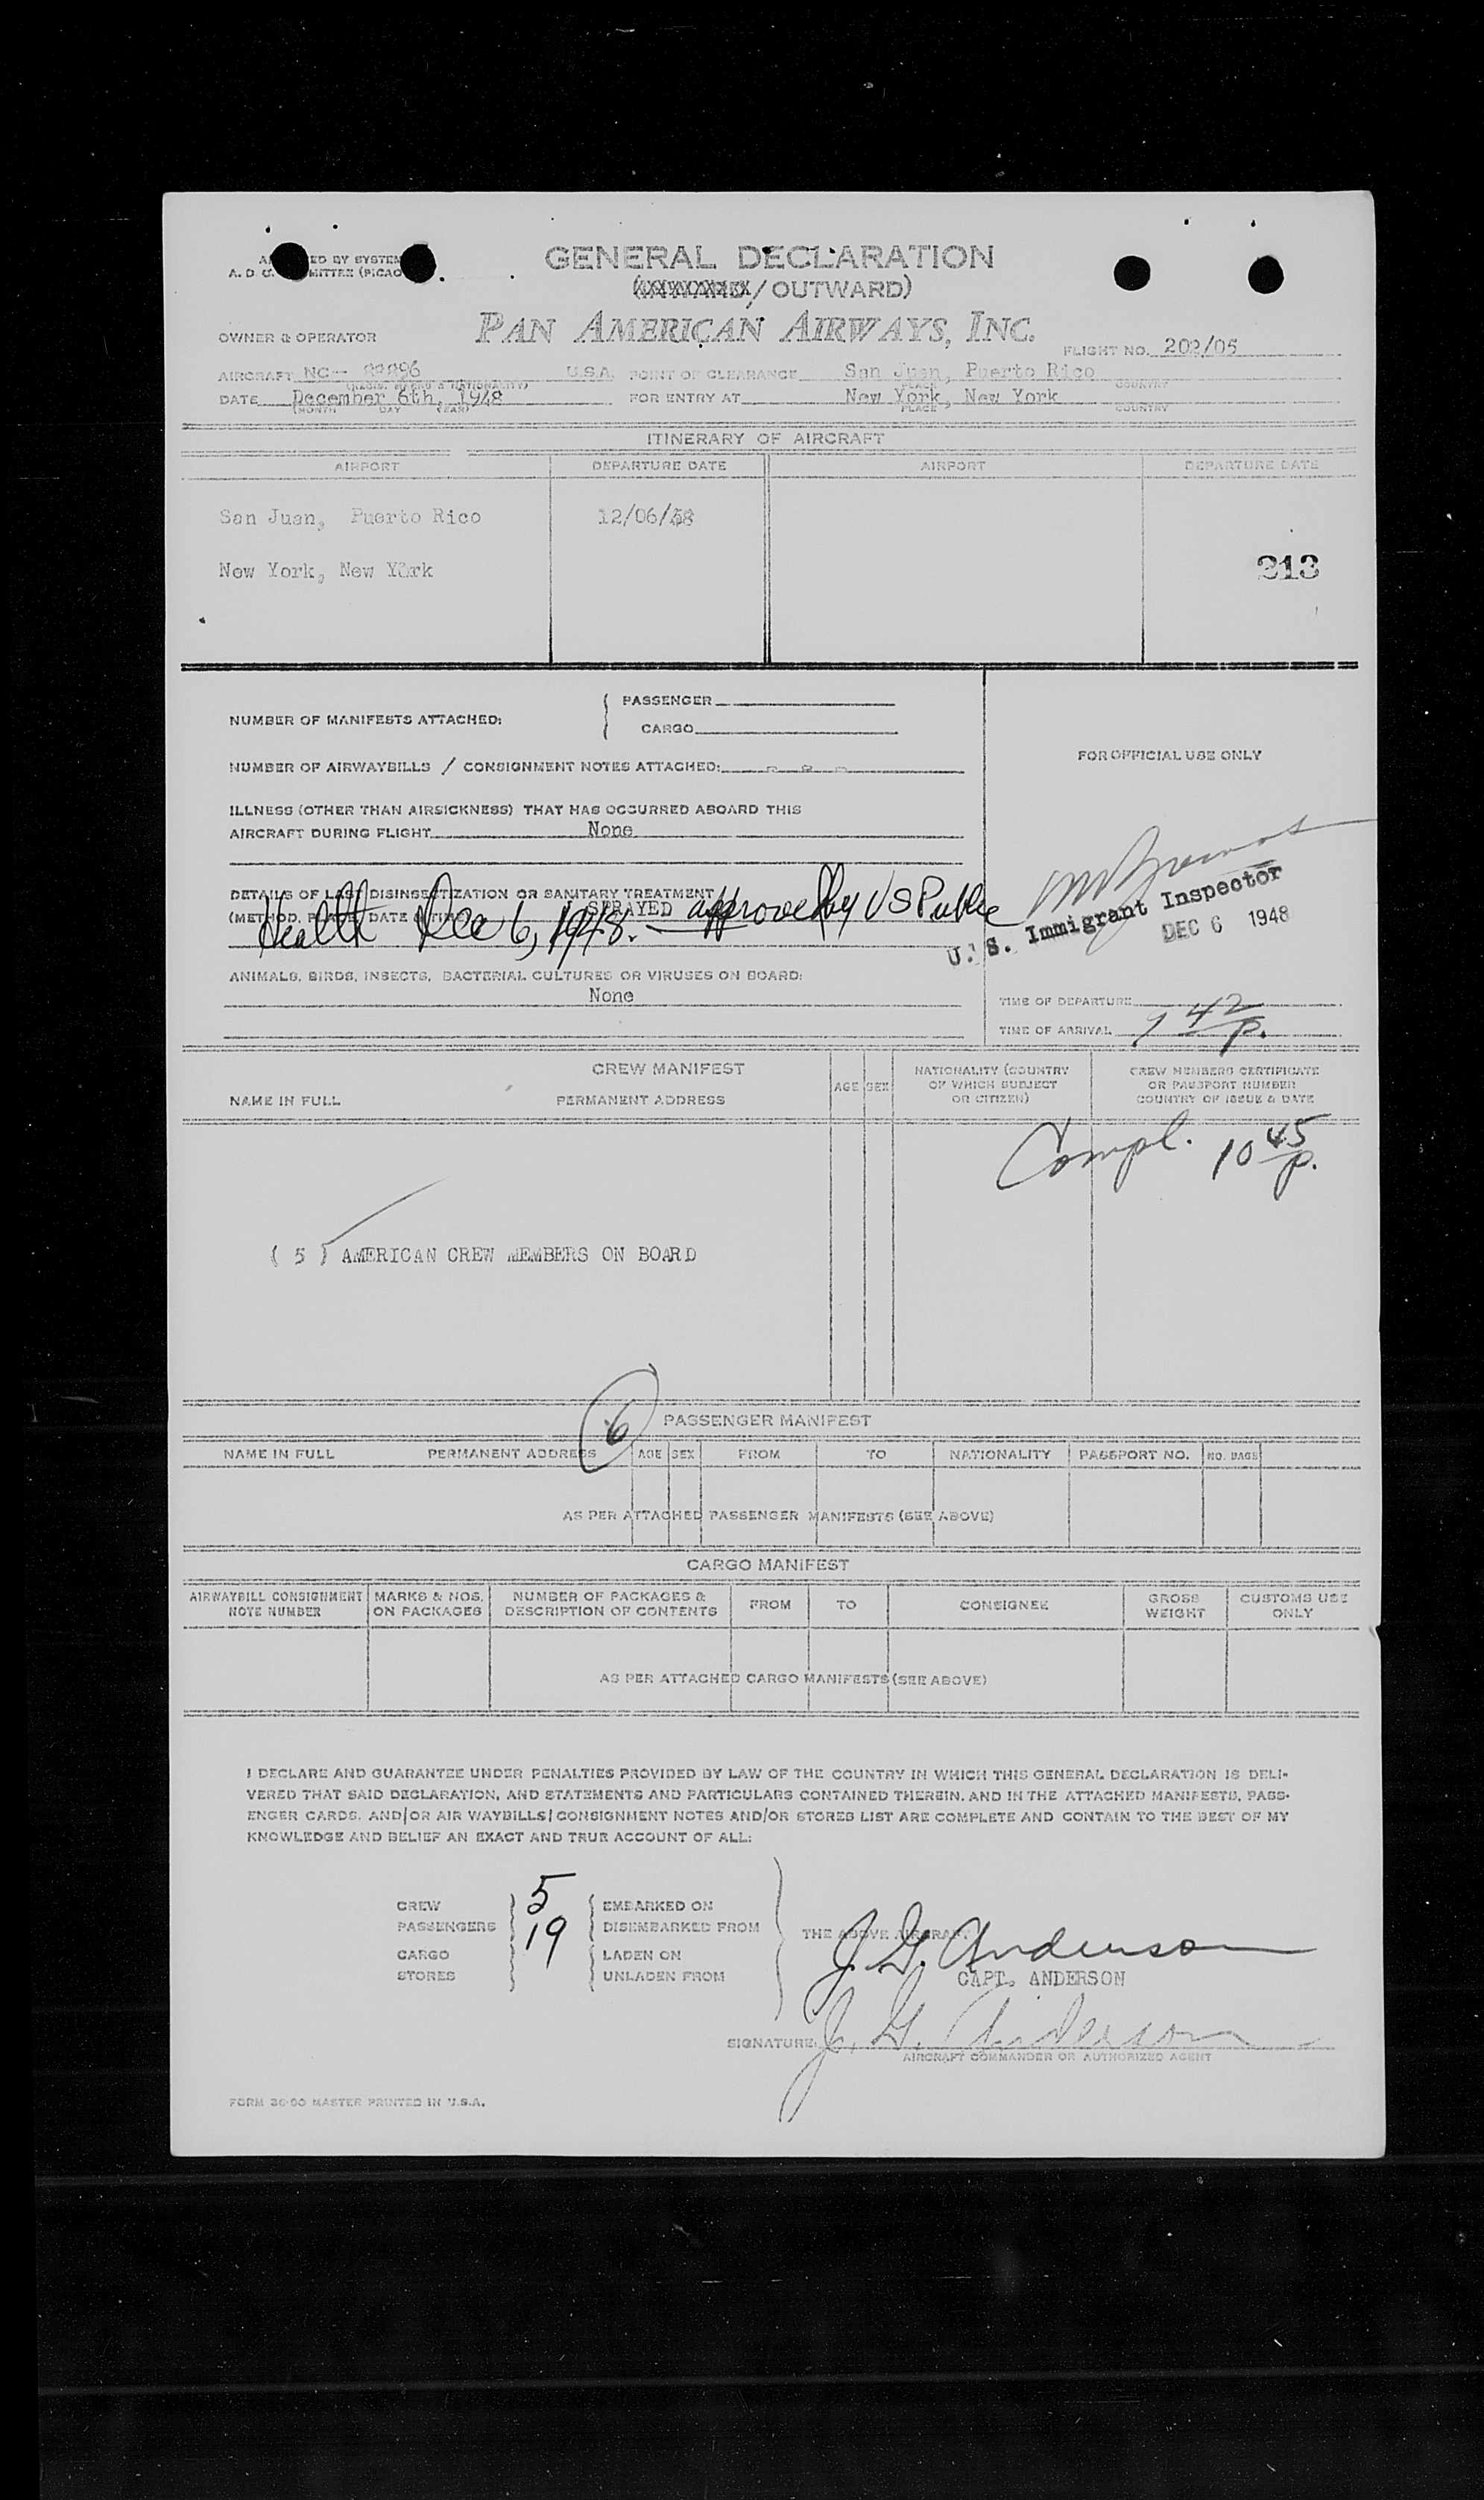 GENERAL DECLARATION
A. D. C.
/ OUTWARD)
PAN AMERICAN AIRWAYS, INC.
OWNER & OPERATOR
FLIGHT NO. 202/05
AIRCRAFT NC- U.S.A. POINT OF CLEARANCE San Juan, Puerto Rico
PLACE COUNTRY
DATE December 6th, 1948 FOR ENTRY AT New York, New York
(MONTH DAY YEAR) PLACE COUNTRY
ITINERARY OF AIRCRAFT
AIRPORT DEPARTURE DATE AIRPORT DEPARTURE DATE
San Juan, Puerto Rico 12/06/48
New York, New York 213
PASSENGER
NUMBER OF MANIFESTS ATTACHED:
CARGO
FOR OFFICIAL USE ONLY
NUMBER OF AIRWAYBILLS / CONSIGNMENT NOTES ATTACHED:
ILLNESS (OTHER THAN AIRSICKNESS) THAT HAS OCCURRED ABOARD THIS
AIRCRAFT DURING FLIGHT None
DETAILS OF LAST DISINSECTIZATION OR SANITARY TREATMENT
(METHOD, PLACE, DATE & TIME) SPRAYED approved by US Public
Health Dec 6, 1948.
U. S. Immigrant Inspector
DEC 6 1948
ANIMALS, BIRDS, INSECTS, BACTERIAL CULTURES OR VIRUSES ON BOARD:
None
TIME OF DEPARTURE
TIME OF ARRIVAL 7 42 p.
CREW MANIFEST
NAME IN FULL PERMANENT ADDRESS AGE SEX NATIONALITY (COUNTRY OF WHICH SUBJECT OR CITIZEN) CREW MEMBERS CERTIFICATE OR PASSPORT NUMBER COUNTRY OF ISSUE & DATE
Compl. 10 45 p.
( 5 ) AMERICAN CREW MEMBERS ON BOARD
6
PASSENGER MANIFEST
NAME IN FULL PERMANENT ADDRESS AGE SEX FROM TO NATIONALITY PASSPORT NO. NO. BAGS
AS PER ATTACHED PASSENGER MANIFESTS (SEE ABOVE)
CARGO MANIFEST
AIRWAYBILL CONSIGNMENT NOTE NUMBER MARKS & NOS. ON PACKAGES NUMBER OF PACKAGES & DESCRIPTION OF CONTENTS FROM TO CONSIGNEE GROSS WEIGHT CUSTOMS USE ONLY
AS PER ATTACHED CARGO MANIFESTS (SEE ABOVE)
I DECLARE AND GUARANTEE UNDER PENALTIES PROVIDED BY LAW OF THE COUNTRY IN WHICH THIS GENERAL DECLARATION IS DELI-
VERED THAT SAID DECLARATION, AND STATEMENTS AND PARTICULARS CONTAINED THEREIN, AND IN THE ATTACHED MANIFESTS, PASS-
ENGER CARDS, AND/OR AIR WAYBILLS/CONSIGNMENT NOTES AND/OR STORES LIST ARE COMPLETE AND CONTAIN TO THE BEST OF MY
KNOWLEDGE AND BELIEF AN EXACT AND TRUE ACCOUNT OF ALL:
CREW 5 EMBARKED ON
PASSENGERS 19 DISEMBARKED FROM
THE ABOVE AIRCRAFT
CARGO LADEN ON
STORES UNLADEN FROM
J. G. Anderson
CAPT. ANDERSON
SIGNATURE: J. G. Anderson
AIRCRAFT COMMANDER OR AUTHORIZED AGENT
FORM 36-90 MASTER PRINTED IN U.S.A.